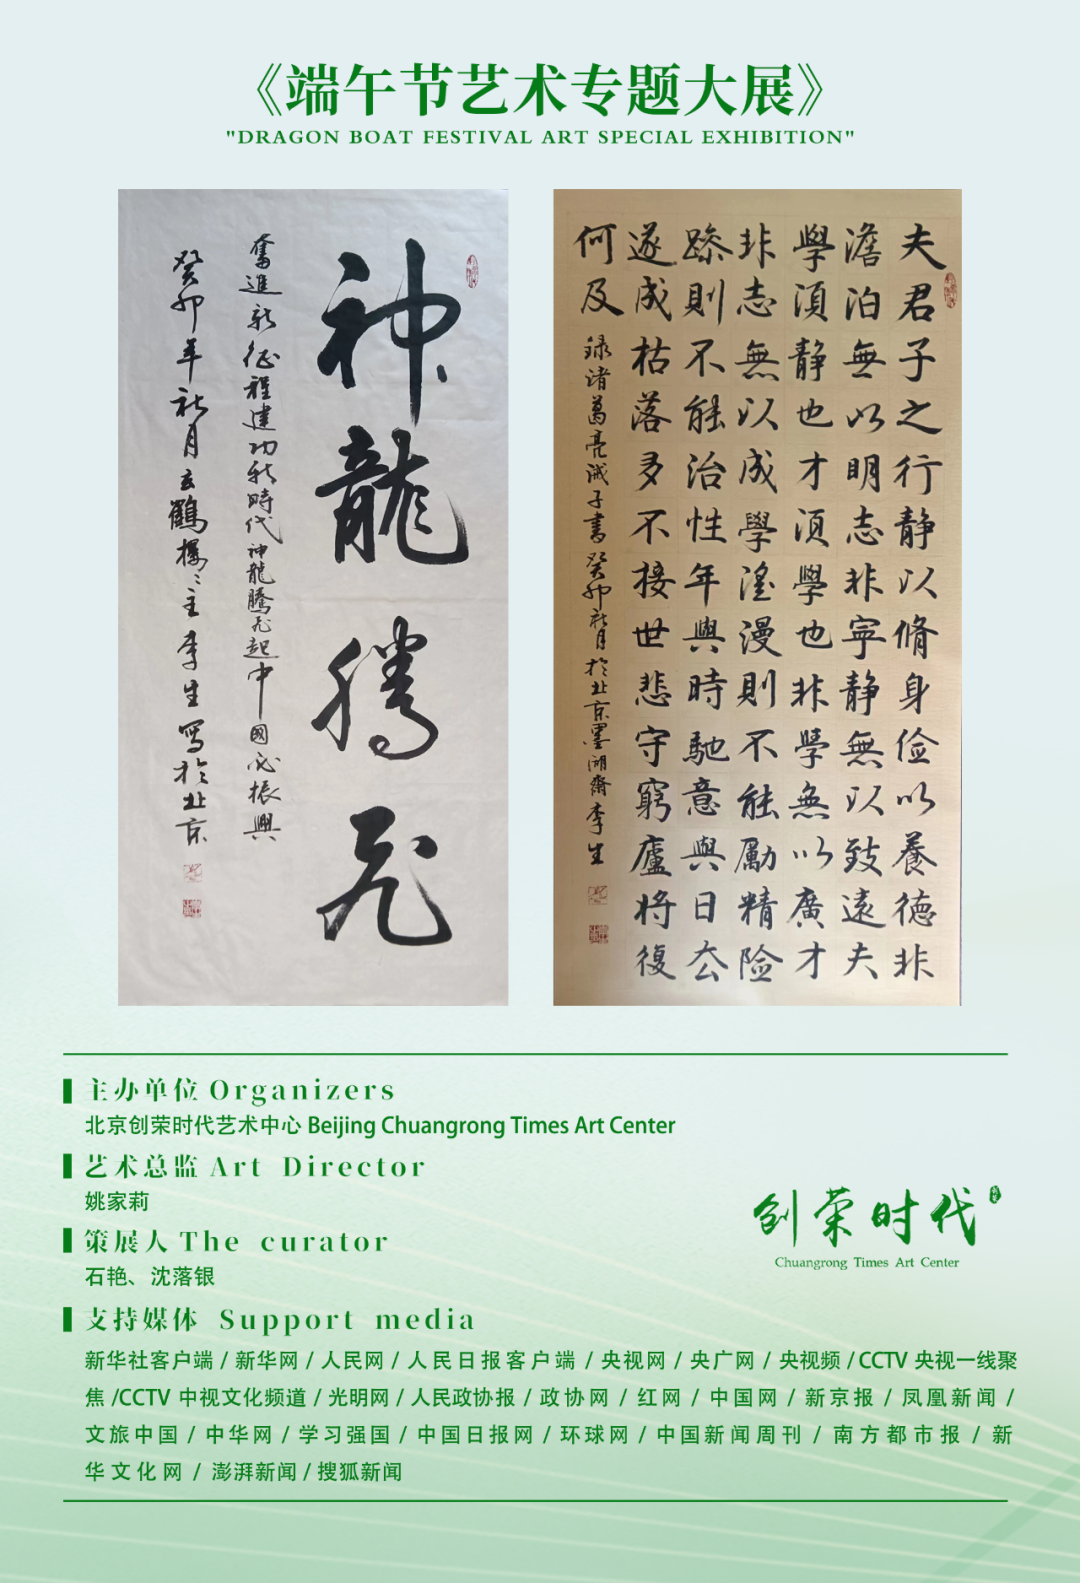 《端午节艺术专题大展》
"DRAGON BOAT FESTIVAL ART SPECIAL EXHIBITION"
神龍騰飞
奮進新征程建功新時代神龍騰飞起中國必振興
癸卯年秋月玄鶴樓主李生寫於北京
夫君子之行静以脩身俭以養德非
澹泊無以明志非宁静無以致遠夫
學須静也才须學也非學無以廣才
非志無以成學滛漫則不能勵精险
躁則不能治性年與時馳意與日厺
遂成枯落多不接世悲守窮廬将復
何及
録诸葛亮诫子書癸卯秋月於北京墨湖齋李生
主办单位 Organizers
北京创荣时代艺术中心 Beijing Chuangrong Times Art Center
艺术总监 Art Director
姚家莉
策展人 The curator
石艳、沈落银
创荣时代
Chuangrong Times Art Center
支持媒体 Support media
新华社客户端 / 新华网 / 人民网 / 人民日报客户端 / 央视网 / 央广网 / 央视频 / CCTV 央视一线聚
焦 /CCTV 中视文化频道 / 光明网 / 人民政协报 / 政协网 / 红网 / 中国网 / 新京报 / 凤凰新闻 /
文旅中国 / 中华网 / 学习强国 / 中国日报网 / 环球网 / 中国新闻周刊 / 南方都市报 / 新
华文化网 / 澎湃新闻 / 搜狐新闻